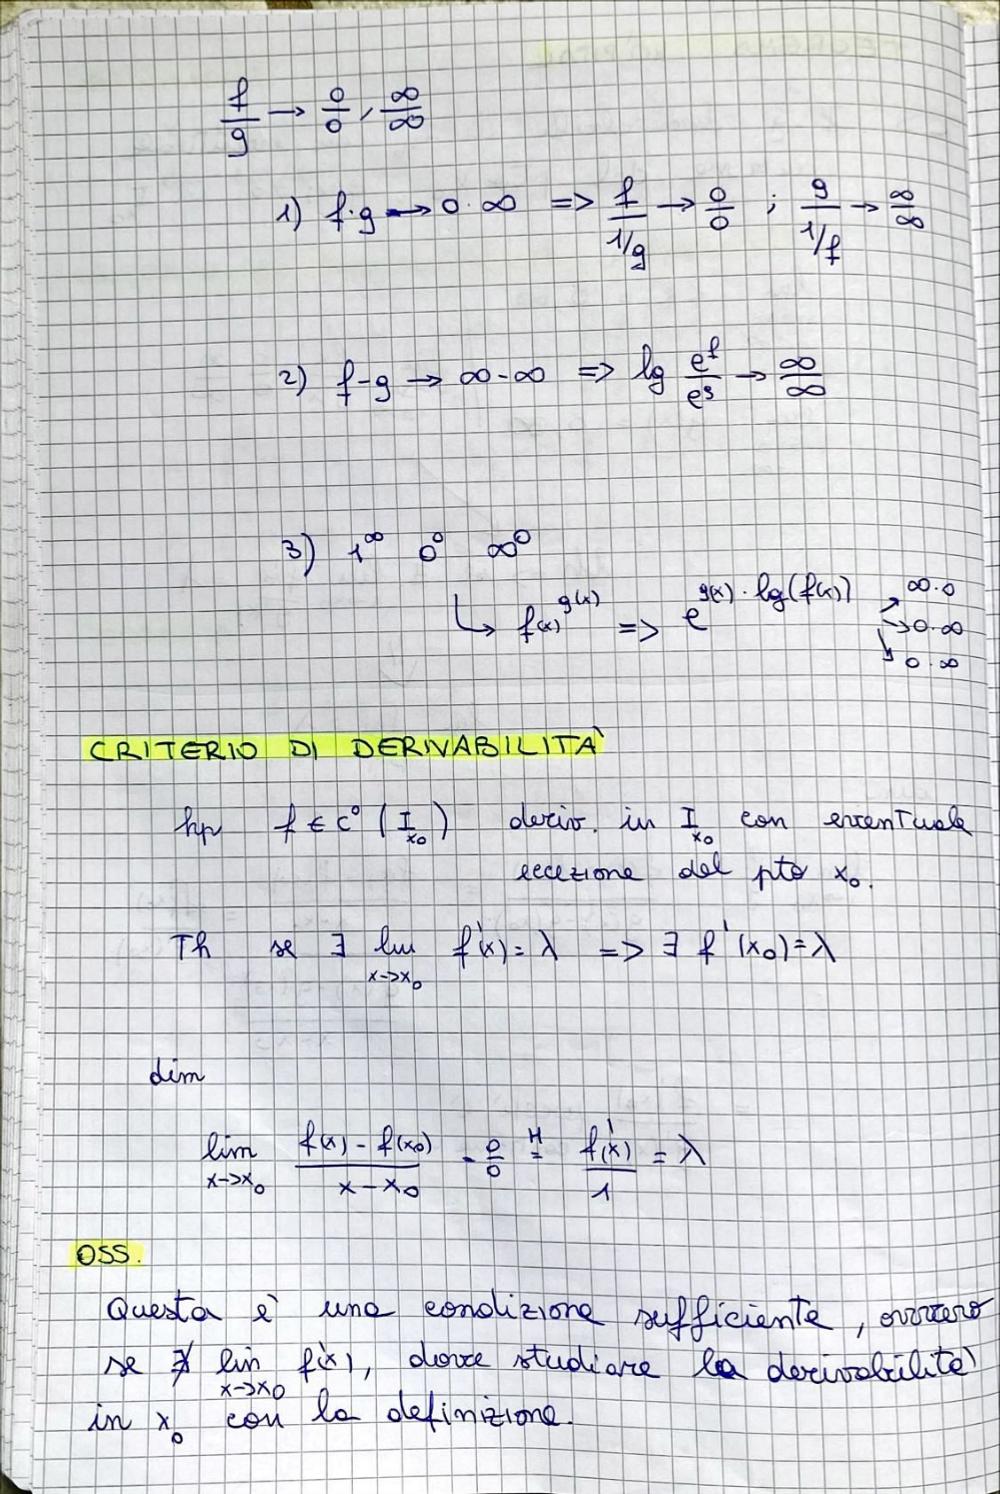 f/g → 0/0, ∞/∞
1) f·g → 0·∞ => f/(1/g) → 0/0 ; g/(1/f) → ∞/∞
2) f-g → ∞-∞ => lg e^f/e^g → ∞/∞
3) 1^∞ 0^0 ∞^0
↳ f(x)^g(x) => e^(g(x)·lg(f(x))) ↗ ∞·0
→ 0·∞
↘ 0·∞
CRITERIO DI DERIVABILITA'
hp f ∈ C°(I_x₀) deriv. in I_x₀ con eventuale
eccezione del pto x₀.
Th se ∃ lim x->x₀ f'(x) = λ => ∃ f'(x₀) = λ
dim
lim x->x₀ (f(x) - f(x₀))/(x-x₀) = 0/0 H= f'(x)/1 = λ
OSS.
Questa è una condizione sufficiente, ovvero
se ∄ lim x->x₀ f'(x), dovre studiare la derivabilità
in x₀ con la definizione.